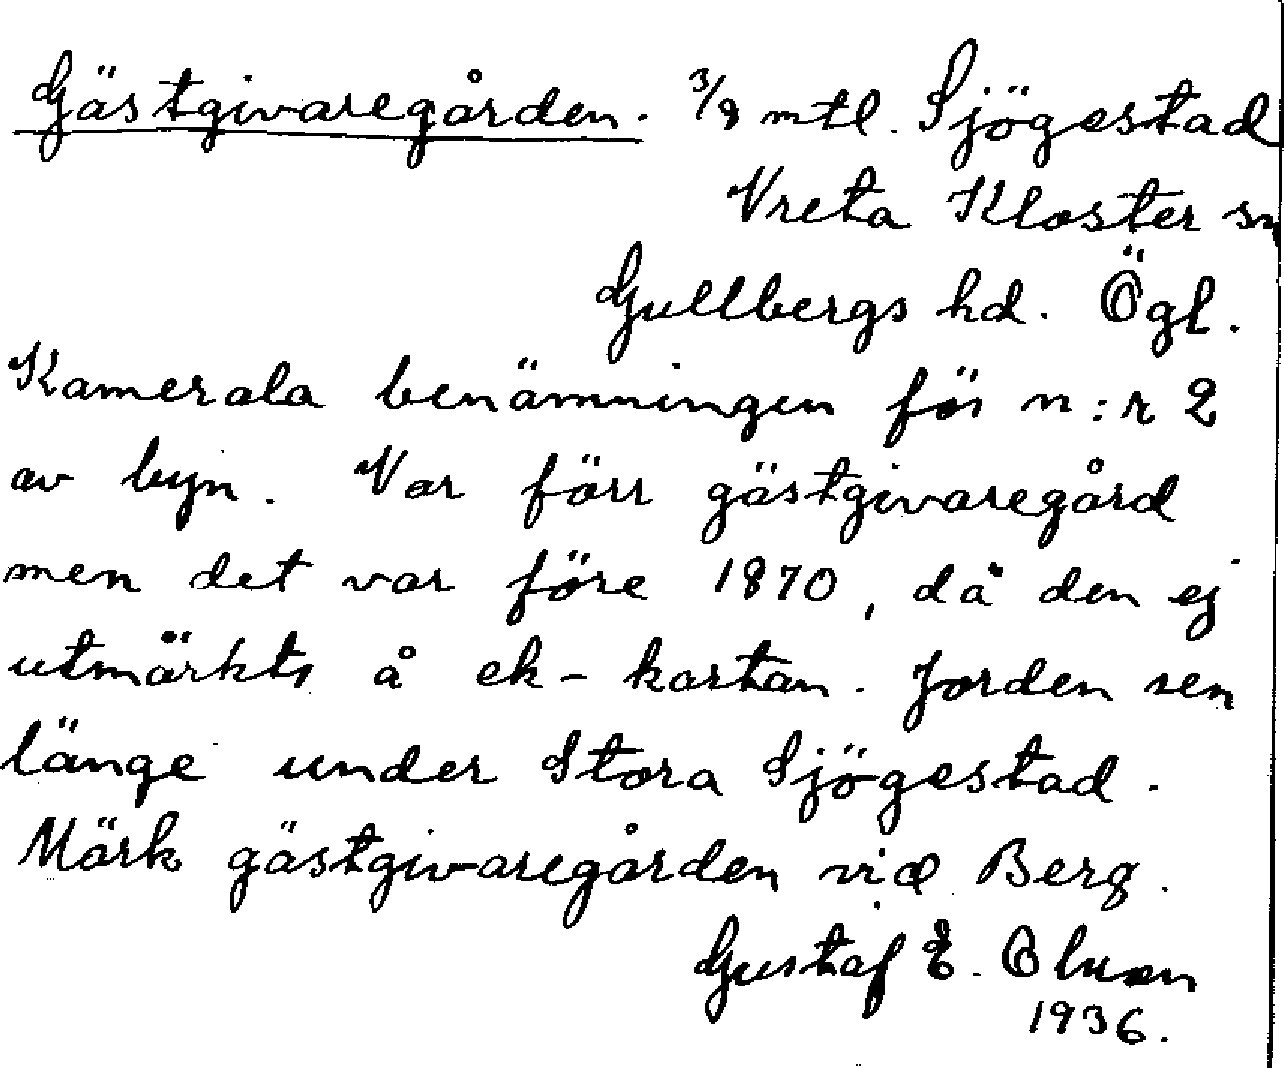 Gästgivaregården. 3/8 mtl. Sjögestad
Vreta Kloster sn
Gullbergs hd. Ögl.
Kamerala benämningen för n:r 2
av byn. Var förr gästgivaregård
men det var före 1870, då den ej
utmärkts å ek-kartan. Jorden sen
länge under Stora Sjögestad.
Märk gästgivaregården vid Berg.
Gustaf E. Olsson
1936.